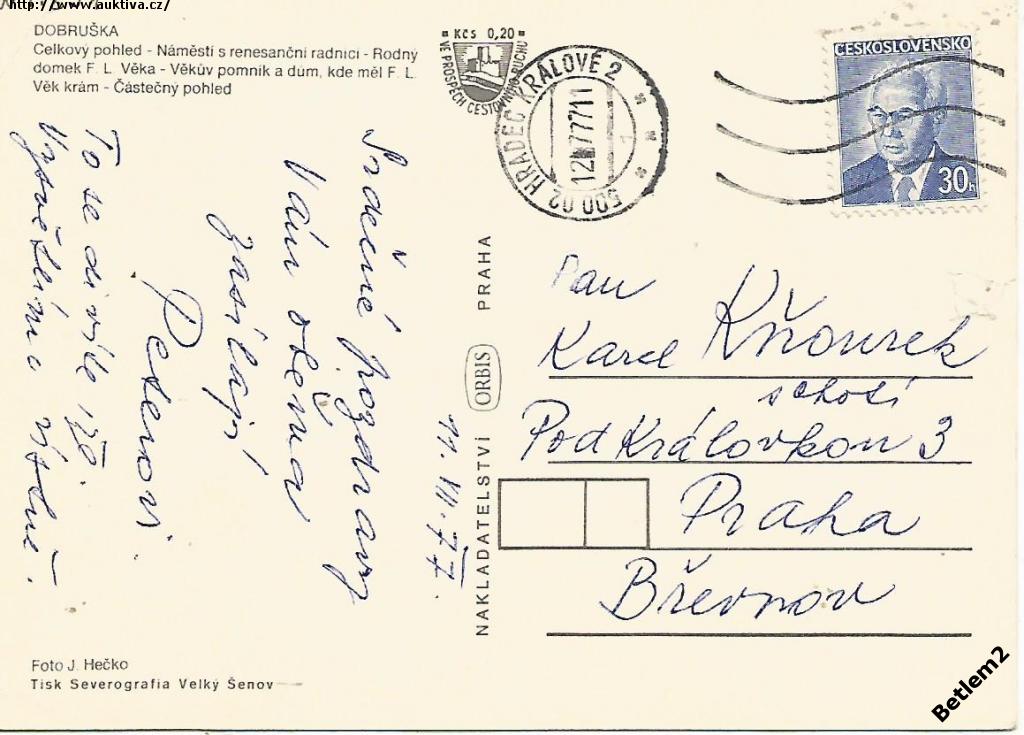 http://www.auktiva.cz/
DOBRUŠKA
Celkový pohled - Náměstí s renesanční radnicí - Rodný
domek F. L. Věka - Věkův pomník a dům, kde měl F. L.
Věk krám - Částečný pohled
Kčs 0,20
VE PROSPĚCH CESTOVNÍHO RUCHU
500 02 HRADEC KRÁLOVÉ 2
ČESKOSLOVENSKO
30h
Srdečné pozdravy
Vám oběma
zasílají
Peterovi.
To se dívíte co.
Vysvětlíme ústně.
11. VII. 77.
NAKLADATELSTVÍ ORBIS PRAHA
Pan
Karel Kňourek
s chotí
Pod Královkou 3
Praha
Břevnov
Foto J. Hečko
Tisk Severografia Velký Šenov
Betlem2